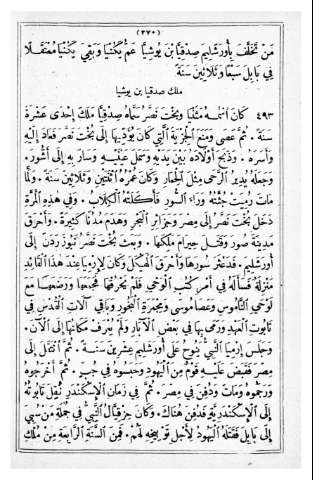 (٢٧٠)
مَنْ تَخَلَّفَ بِأُورَشَلِيمَ صِدْقِيَّا بْنَ يُوشِيَّا عَمَّ يَكُنْيَا وَبَقِيَ يَكُنْيَا مُعْتَقَلًا
فِي بَابِلَ سَبْعًا وَثَلَاثِينَ سَنَةً
ملك صدقيا بن يوشيا
٤٩٣ كَانَ اسْمُهُ مَتَّنْيَا وَبُخْتُ نَصَّرُ سَمَّاهُ صِدْقِيَّا مَلَكَ إِحْدَى عَشْرَةَ
سَنَةً. ثُمَّ عَصَى وَمَنَعَ الْجِزْيَةَ الَّتِي كَانَ يُؤَدِّيهَا إِلَى بُخْتَ نَصَّرَ فَعَادَ إِلَيْهِ
وَأَسَرَهُ. وَذَبَحَ أَوْلَادَهُ بَيْنَ يَدَيْهِ وَسَمَلَ عَيْنَيْهِ وَسَارَ بِهِ إِلَى أَشُّورَ.
وَجَعَلَهُ يُدِيرُ الرَّحَى مِثْلَ الْحِمَارِ وَكَانَ عُمْرُهُ اثْنَتَيْنِ وَثَلَاثِينَ سَنَةً. وَلَمَّا
مَاتَ رُمِيَتْ جُثَّتُهُ وَرَاءَ السُّورِ فَأَكَلَتْهُ الْكِلَابُ. وَفِي هٰذِهِ الْمَرَّةِ
دَخَلَ بُخْتُ نَصَّرُ إِلَى مِصْرَ وَجَزَائِرِ الْبَحْرِ وَهَدَمَ مُدُنًا كَثِيرَةً. وَأَحْرَقَ
مَدِينَةَ صُورَ وَقَتَلَ حِيرَامَ مَلِكَهَا. وَبَعَثَ بُخْتُ نَصَّرُ نَبُوزَرَدَنَ إِلَى
أُورَشَلِيمَ. فَدَعْثَرَ سُورَهَا وَأَحْرَقَ الْهَيْكَلَ وَكَانَ لِإِرْمِيَا عِنْدَ هٰذَا الْقَائِدِ
مَنْزِلَةٌ فَسَأَلَهُ فِي أَمْرِ كُتُبِ الْوَحْيِ فَلَمْ يُحْرِقْهَا فَجَمَعَهَا وَوَضَعَهَا مَعَ
لَوْحَيِ النَّامُوسِ وَعَصَا مُوسَى وَمِجْمَرَةِ الْبَخُورِ وَبَاقِي آلَاتِ الْقُدْسِ فِي
تَابُوتِ الْعَهْدِ وَرَمَى بِهَا فِي بَعْضِ الْآبَارِ وَلَمْ يُعْرَفْ مَكَانُهَا إِلَى الْآنَ.
وَجَلَسَ إِرْمِيَا النَّبِيُّ يَنُوحُ عَلَى أُورَشَلِيمَ عِشْرِينَ سَنَةً. ثُمَّ انْتَقَلَ إِلَى
مِصْرَ فَقَبَضَ عَلَيْهِ قَوْمٌ مِنَ الْيَهُودِ وَحَبَسُوهُ فِي جُبٍّ. ثُمَّ أَخْرَجُوهُ
وَرَجَمُوهُ وَمَاتَ وَدُفِنَ فِي مِصْرَ. ثُمَّ فِي زَمَانِ الْإِسْكَنْدَرِ نُقِلَ تَابُوتُهُ
إِلَى الْإِسْكَنْدَرِيَّةِ فَدُفِنَ هُنَاكَ. وَكَانَ حِزْقِيَالُ النَّبِيُّ فِي جُمْلَةِ مَنْ سُبِيَ
إِلَى بَابِلَ فَقَتَلَهُ الْيَهُودُ لِأَجْلِ تَوْبِيخِهِ لَهُمْ. فَمِنَ السَّنَةِ الرَّابِعَةِ مِنْ مُلْكِ